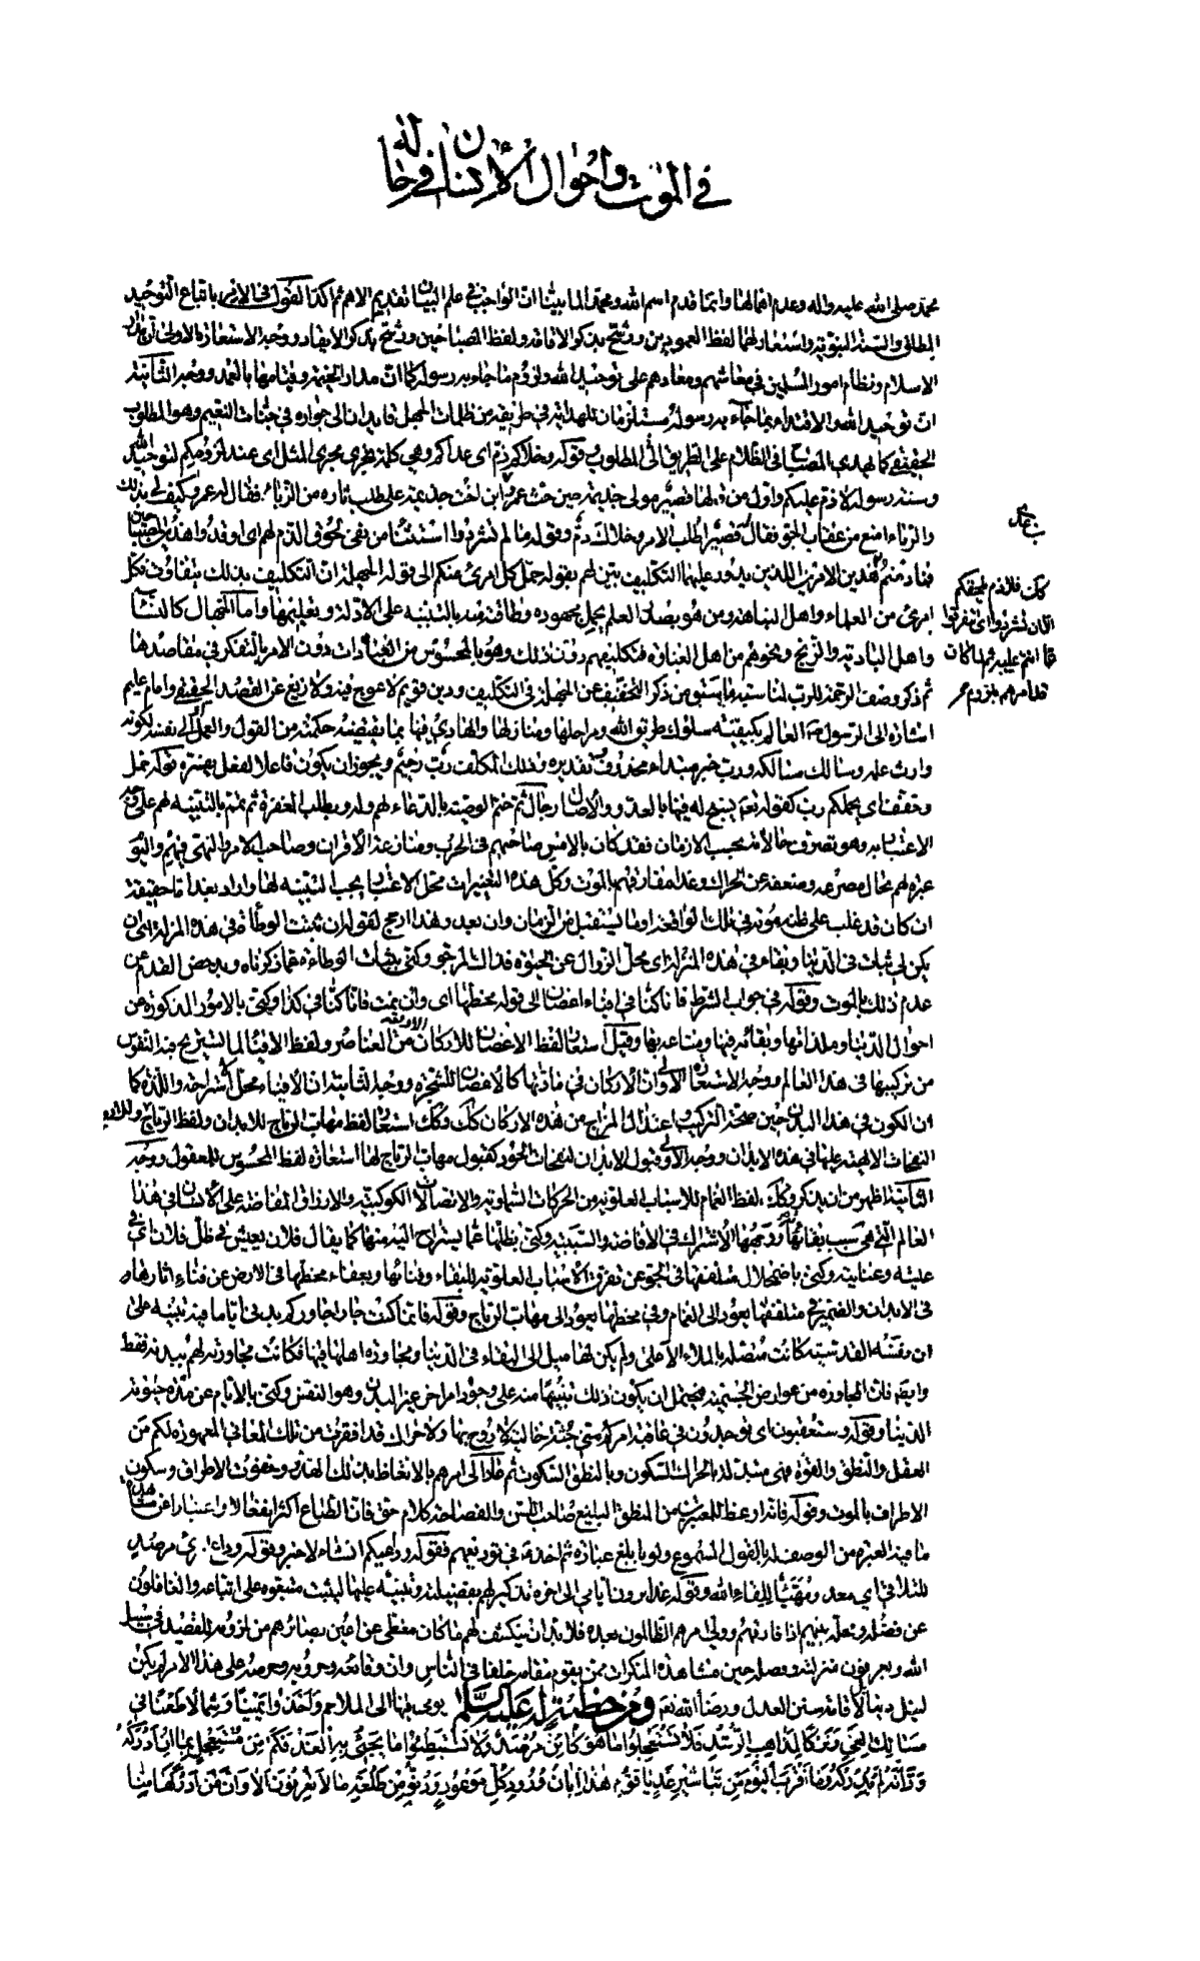 في الموت واحوال الأنسان في حاله
محمد صلى الله عليه واله وعدم اهمالها وانما قدم اسم الله ومحمد لما بيّنا ان الواجب في علم البيان تقديم الاهم ثم اكد القول في الامرين باتباع التوحيد
المطلق والسنة النبوية واستعار لهما لفظ العمودين ورشح بذكر الاقامة ولفظ المصباحين ورشح بذكر الايقاد ووجه الاستعارة الاولى ان مدار
الاسلام ونظام امور المسلمين في معاشهم ومعادهم على توحيد الله ولزوم ما جاء به رسوله كما ان مدار الخيمة وقيامها بالعمد ووجه الثانية
ان توحيد الله والاقتداء بما جاء به رسوله مستلزمان للهداية في طريقه من ظلمات الجهل قايدان الى جواره في جنات النعيم وهو المطلوب
الحقيقي كما يهدي المصباح في الظلام على الطريق الى المطلوب وقوله وخلاكم ذم اى عداكم وهي كلمة تجرى مجرى المثل اى عند لزومكم لتوحيد الله
وسنة رسوله لا ذم عليكم واول من قالها قصير مولى جذيمة حين حث عمرو ابن اخت جذيمة على طلب ثاره من الزباء فقال له عمرو كيف لي بذلك
والزباء امنع من عقاب الجو فقال قصير اطلب الامر وخلاك ذم وقوله ما لم تشردوا استثناء من نفى لحوق الذم لهم اى اوقدوا هذين المصباحين
فما دمتم
كك فلا ذم يلحقكم
الا ان تشردوا اى تتفرقوا
عما انتم عليه
هذين الامرين اللذين يدور عليهما التكليف بيّن لهم بقوله حمل كل امرئ منكم الى قوله الجهلة ان التكليف بذلك يتفاوت فكل
امرئ من العلماء واهل النباهة ومن هو بصدد العلم يحمل مجهوده وطاقته منه بالتنبيه على الادلة وتعليمها واما الجهال كالنساء
واهل البادية والزنج ونحوهم من اهل الغباوة فتكليفهم دون ذلك وهو بالمحسوس من العبادات دون الامر بالتفكر في مقاصدها
ثم ذكر وصف الرحمة للرب لمناسبته ما سبق من ذكر التخفيف عن الجهلة في التكليف ودين قويم لا عوج فيه ولا زيغ عن القصد الحقيقي وامام عليم
اشارة الى الرسول ص العالم بكيفية سلوك طريق الله ومراحلها ومنازلها والهادي فيها بما يقتضيه حكمته من القول والعمل او الى نفسه لكونه
وارث علمه وسالك مسالكه ورب خبر مبتداء محذوف تقديره وذلك المكلف رب رحيم ويجوز ان يكون فاعلا لفعل يفسره قوله حمل
وخفف اى يحملكم رب كقوله تعم يسبح له فيها بالغدو والاصال رجال ثم ختم الوصية بالدعاء لهم وله وبطلب المغفرة ثم تمم بالتنبيه لهم على وجه
الاعتبار به وهو تصرف حالاته بحسب الازمان فقد كان بالامس صاحبهم في الحرب ومنازعة الاقران وصاحب الامر والنهى فيهم واليوم
عبرة لهم بحال مصرعه وضعفه عن الحراك وغدا مفارقهم بالموت وكل هذه التغييرات محل الاعتبار يجب التنبيه لها واراد بغدا اما حقيقته
ان كان قد غلب على ظنه موته في تلك الواقعة او ما يستقبل من الزمان وان بعد وهذا ارجح لقوله ان ثبتت الوطأة في هذه المزلة اى ان
يكن لي ثبات في الدنيا وبقاء في هذه المنزلة اى محل الزوال عن الحيوة فذاك المرجو وكنى بثبات الوطاءة عما ذكرناه وبدحض القدم عن
عدم ذلك بالموت وقوله في جواب الشرط فانا كنا في افياء اغصان الى قوله مخطها اى وان نمت فانا كنا في كذا وكنى بالامور المذكورة عن
احوال الدنيا وملذاتها وبقائه فيها ومتاعه بها وقيل استعار لفظ الاغصان للاركان الاربعة من العناصر ولفظ الافياء لما تستريح فيه النفوس
من تركيبها في هذا العالم ووجه الاستعارة الاولى ان الاركان في مادتها كالاغصان للشجرة ووجه الثانية ان الافياء محل الاستراحة واللذة كما
ان الكون في هذا البدن حين صحة التركيب واعتدال المزاج من هذه الاركان كك وكك استعار لفظ مهاب الرياح للابدان ولفظ الرياح
النفحات الالهية عليها في هذه الابدان ووجه الاولى قبول الابدان لنفحات الجود كقبول مهاب الرياح لها استعارة لفظ المحسوس للمعقول ووجه
الثانية اظهر من ان يذكر وكك لفظ الغمام للاسباب العلوية من الحركات السماوية والاتصالات الكوكبية والارزاق المفاضة على الانسان في هذا
العالم التي هى سبب بقائه ووجهها الاشتراك في الافاضة والسببية وكنى بظلها عما يستراح اليه منها كما يقال فلان يعيش في ظل فلان اى في
عيشه وعنايته وكنى باضمحلال متلفقها في الجو عن تفرق الاسباب العلوية للبقاء وفنائها وبعفاء مخطها في الارض عن فناء اثارها
في الابدان والضمير في متلفقها يعود الى الغمام وفي مخطها يعود الى مهاب الرياح وقوله فانما كنت جارا جاوركم بدنى اياما فيه تنبيه على
ان نفسه القدسية كانت متصلة بالملاء الاعلى ولم يكن لها ميل الى البقاء في الدنيا ومجاورة اهلها فيها فكانت مجاورته لهم ببدنه فقط
وايضا فان المجاورة من عوارض الجسمية فيحتمل ان يكون ذلك تنبيها منه على وجود امر اخر غير البدن وهو النفس وكنى بالايام عن مدة حيوته
الدنيا وقوله وستعقبون اى توجدون في عاقبة امركم منى جثة خالية لا روح بها ولا حراك قد افقرت من تلك المعاني المعهودة لكم من
العقل والنطق والقوة فهى متبدلة بالحراك السكون وبالنطق السكوت ثم عاد الى امرهم بالاتعاظ بذلك الهدو وخفوت الاطراف وسكون
الاطراف بالموت وقوله فانه اوعظ للمعتبرين من المنطق البليغ صاحب اللسن والفصاحة كلام حق فان الطباع اكثر انفعالا واعتبارا عن مشاهدة
ما فيه العبرة من الوصف له بالقول المسموع ولو بابلغ عبارة ثم اخذ في توديعهم فقوله وداعيكم انشاء لاخبر وبقوله وداع امرئ مرصد
للتلاقى اى معد ومهيّأ للقاء الله وقوله غدا ترون ايامي الى اخره تذكير لهم بفضيلته وتنبيه عليها ليثبت متبعوه على اتباعه والغافلون
عن فضله ونعله بينهم اذا فارقهم وولى امرهم الظالمون بعده فلابد ان ينكشف لهم ما كان مغطى عن اعين بصائرهم من لزومه للقصد في سبيل
الله ويعرفون منزلته وفضله حين مشاهدة المنكرات ممن يقوم مقامه خلفا في الناس وان وقائعه وحروبه وحرصه على هذا الامر لم يكن
لنيل دنيا بل لاقامة سنن العدل ورضا الله تعم ومن خطبة له عليه السلم يومى فيها الى الملاحم واخذوا يمينا وشمالا طعنا في
مسالك الغى وتركا لمذاهب الرشد فلا تستعجلوا ما هو كائن مرصد ولا تستبطئوا ما يجئ به الغد فكم من مستعجل بما ان ادركه
ود انه لم يدركه وما اقرب اليوم من تباشير غد يا قوم هذا ابان ورود كل موعود ودنو من طلعة ما لا تعرفون الا وان من ادركها منا